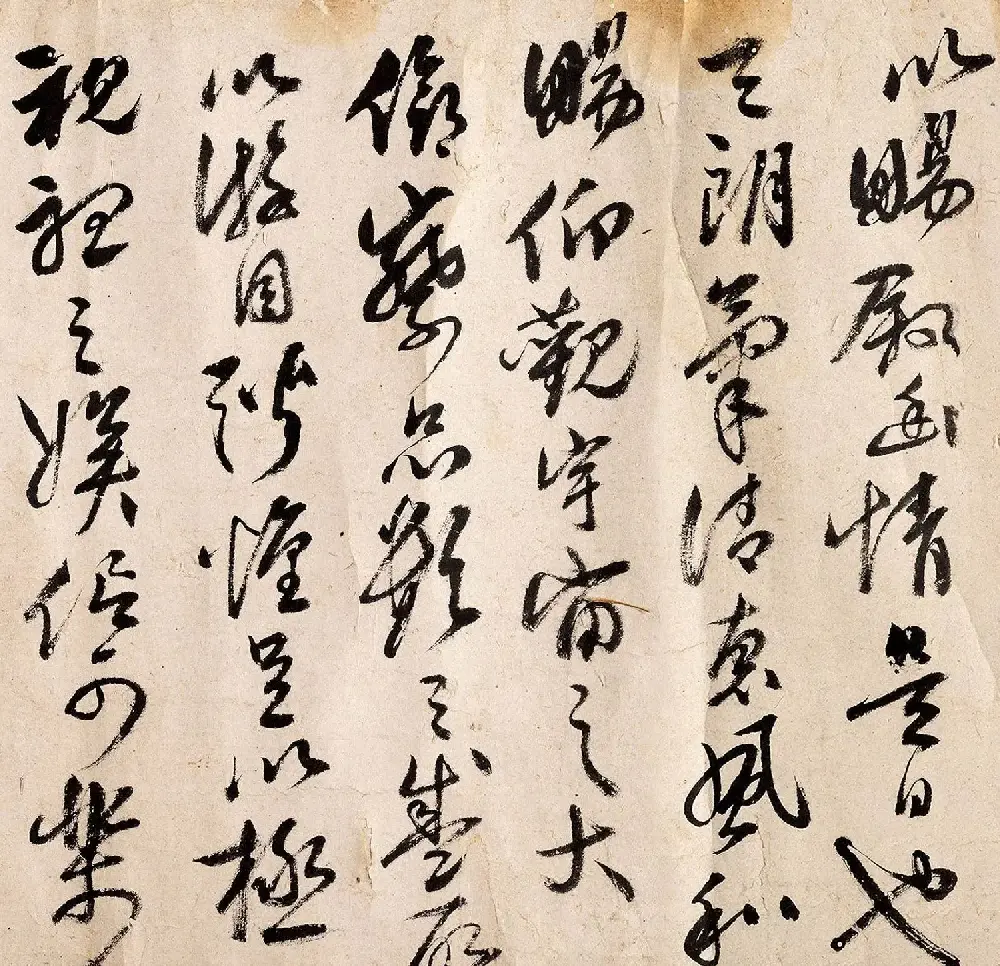 以暢叙幽情是日也
天朗氣清惠風和
暢仰觀宇宙之大
俯察品類之盛所
以游目騁懷足以極
視聽之娛信可樂